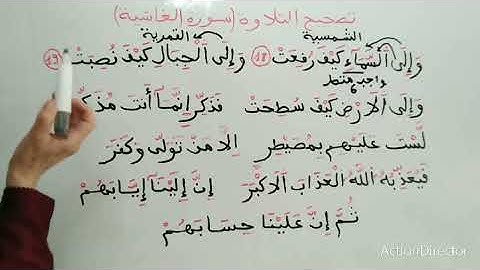 تصحيح التلاوة (سورة الغاشية)
الشمسية القمرية
وَإِلَى ٱلسَّمَآءِ كَيْفَ رُفِعَتْ (18) وَإِلَى ٱلْجِبَالِ كَيْفَ نُصِبَتْ (19)
واجب متصل
6
وَإِلَى ٱلَارْضِ كَيْفَ سُطِحَتْ فَذَكِّرِ انَّمَآ أَنتَ مُذَكِّرٌ
لَّسْتَ عَلَيْهِم بِمُصَيْطِرٍ اِلَّا مَن تَوَلَّىٰ وَكَفَرَ
فَيُعَذِّبُهُ اللَّهُ الْعَذَابَ اَلَاكْبَرَ إِنَّ إِلَيْنَآ إِيَابَهُمْ
ثُمَّ إِنَّ عَلَيْنَا حِسَابَهُمْ
ActionDirector